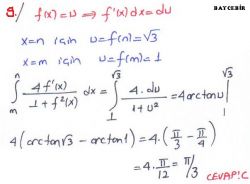 BAYCEBİR
9./ f(x)=u ⇒ f'(x)dx=du
x=n için u=f(n)=√3
x=m için u=f(m)=1
∫_m^n 4f'(x)/(1+f²(x)) dx = ∫_1^√3 4.du/(1+u²) = 4arctanu |_1^√3
4(arctan√3 − arctan1) = 4.(π/3 − π/4)
= 4.π/12 = π/3
CEVAP:C